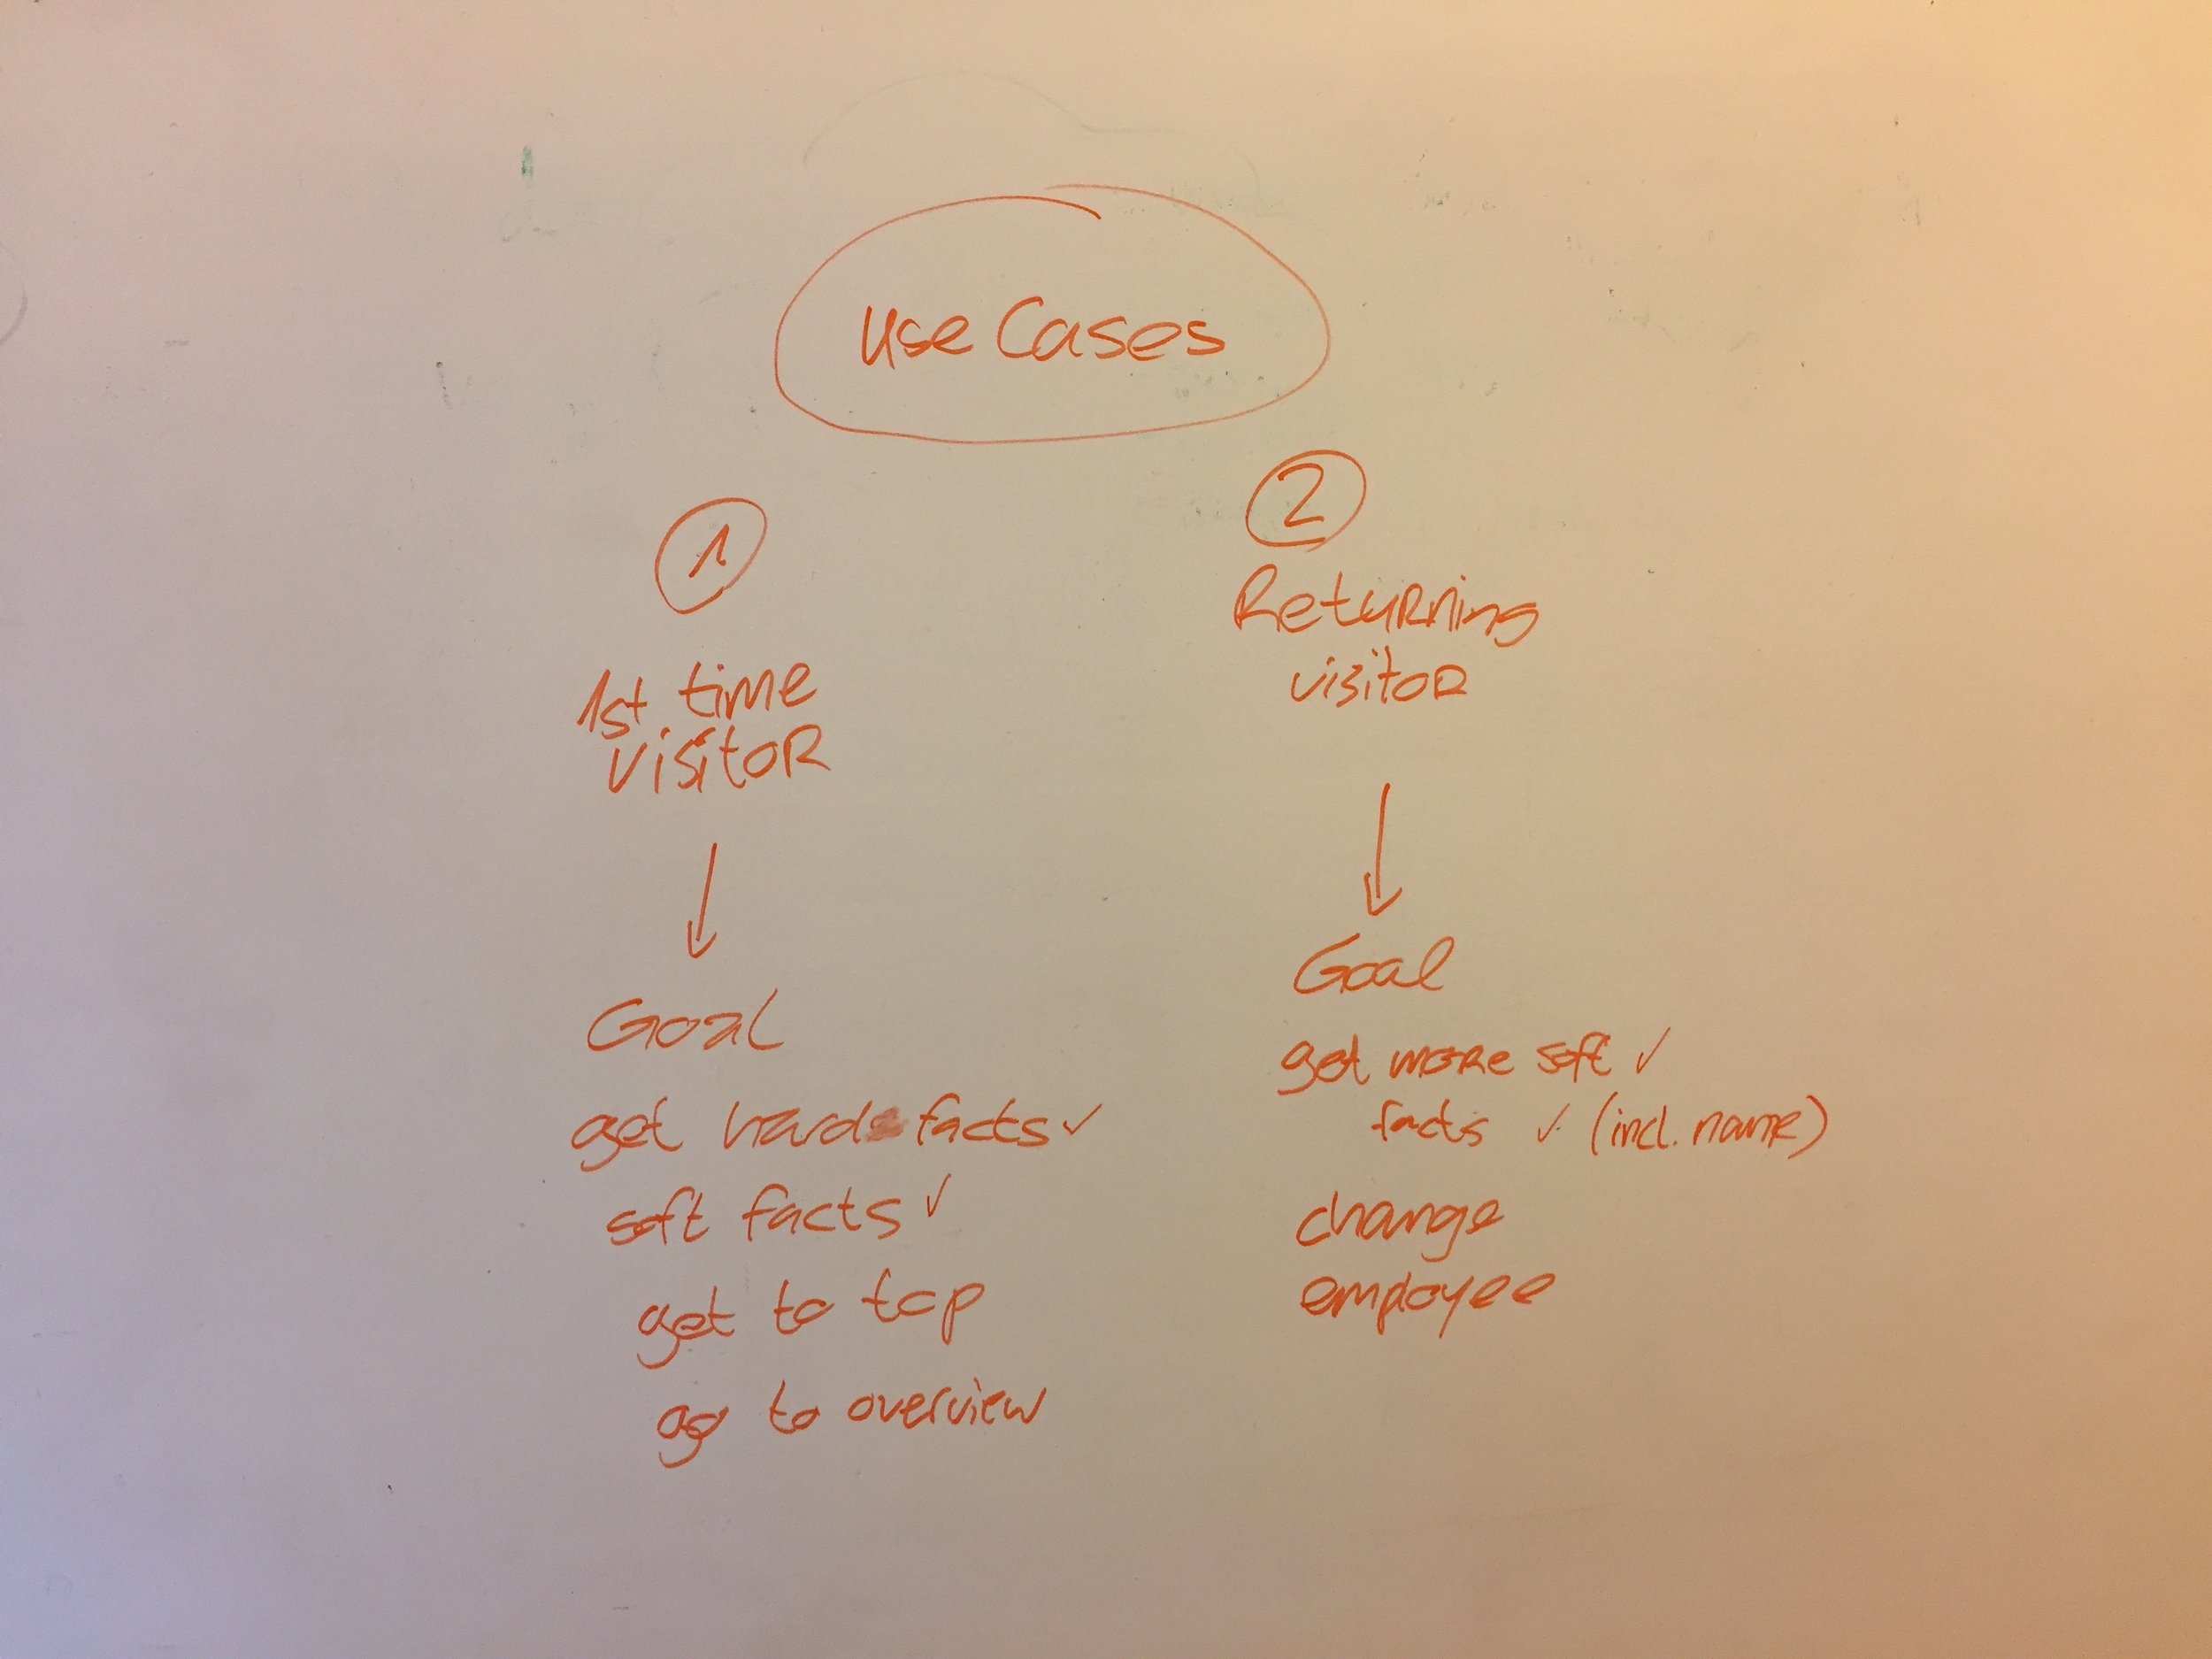 Use Cases
1
1st time
visitor
Goal
get hard facts ✓
soft facts ✓
get to top
go to overview
2
Returning
visitor
Goal
get more soft ✓
facts ✓ (incl. name)
change
employee